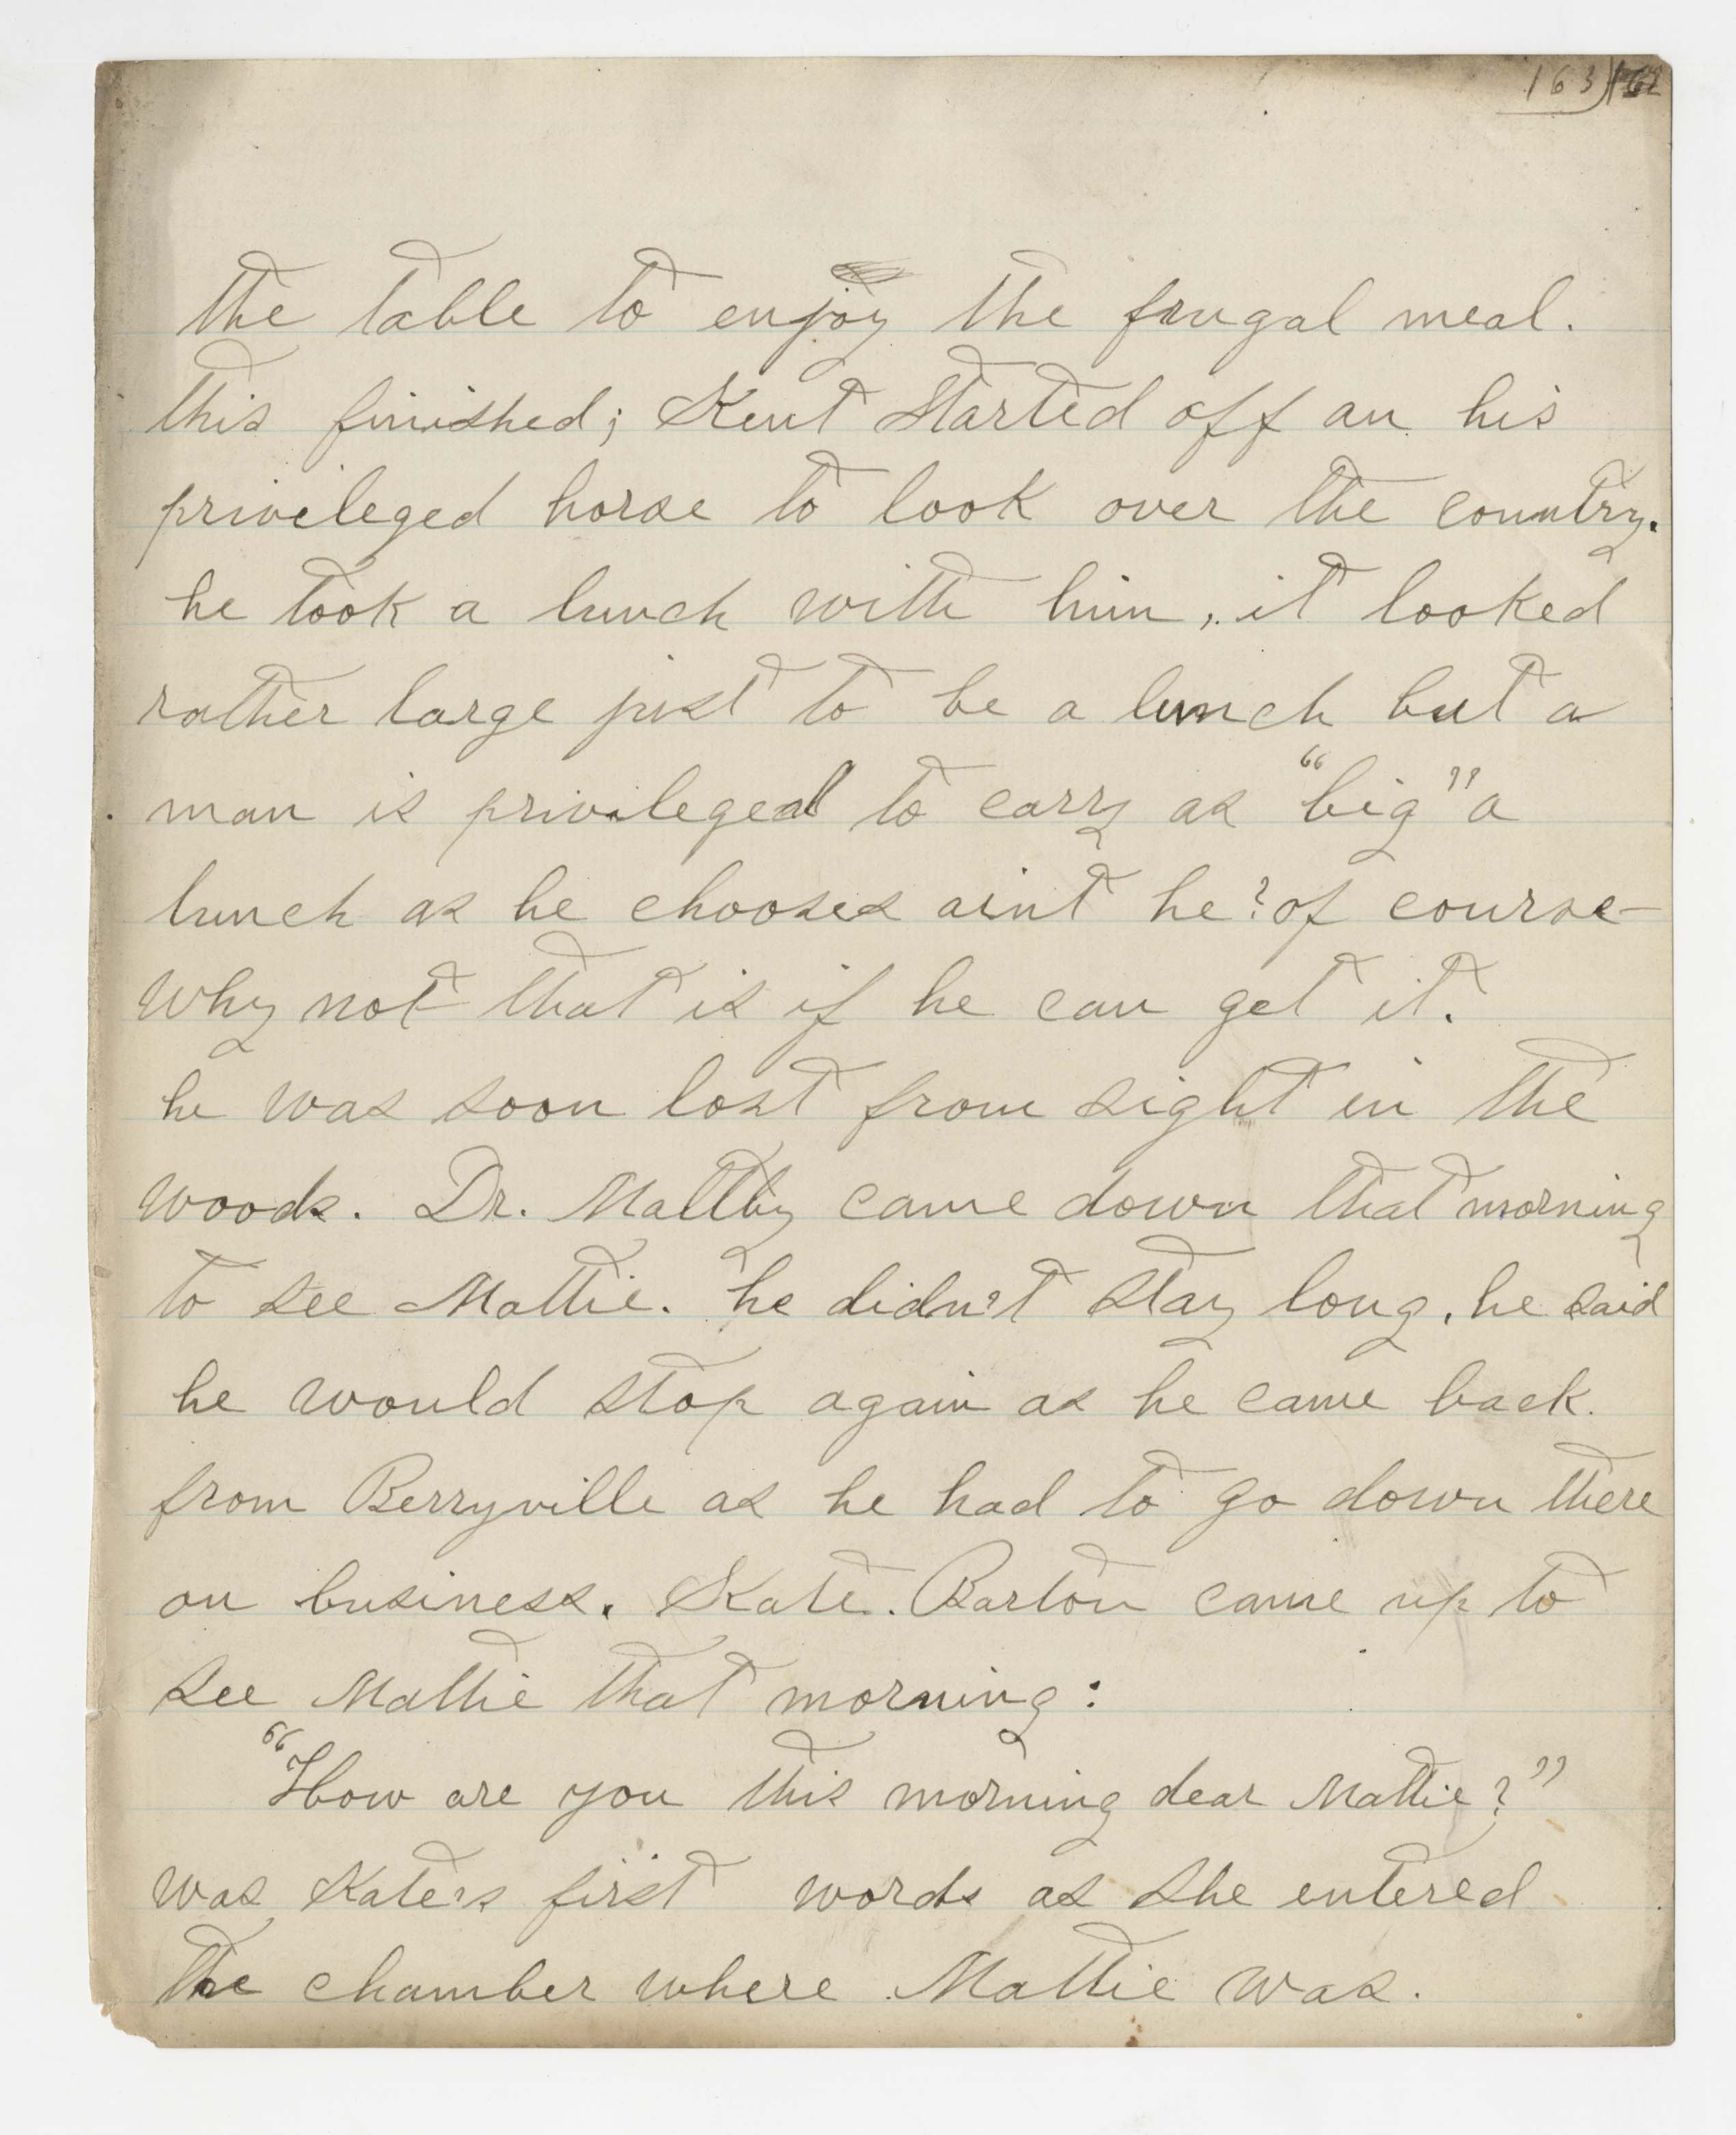 163
the table to enjoy the frugal meal.
this finished; Kent started off on his
privileged horse to look over the country.
he took a lunch with him, it looked
rather large just to be a lunch but a
man is privileged to carry as "big" a
lunch as he chooses aint he? of course—
why not that is if he can get it.
he was soon lost from sight in the
woods. Dr. Maltby came down that morning
to see Mattie. he didn't stay long, he said
he would stop again as he came back.
from Berryville as he had to go down there
on business. Kate. Barton came up to
see Mattie that morning:
"How are you this morning dear Mattie?"
was Kate's first words as she entered
the chamber where Mattie was.